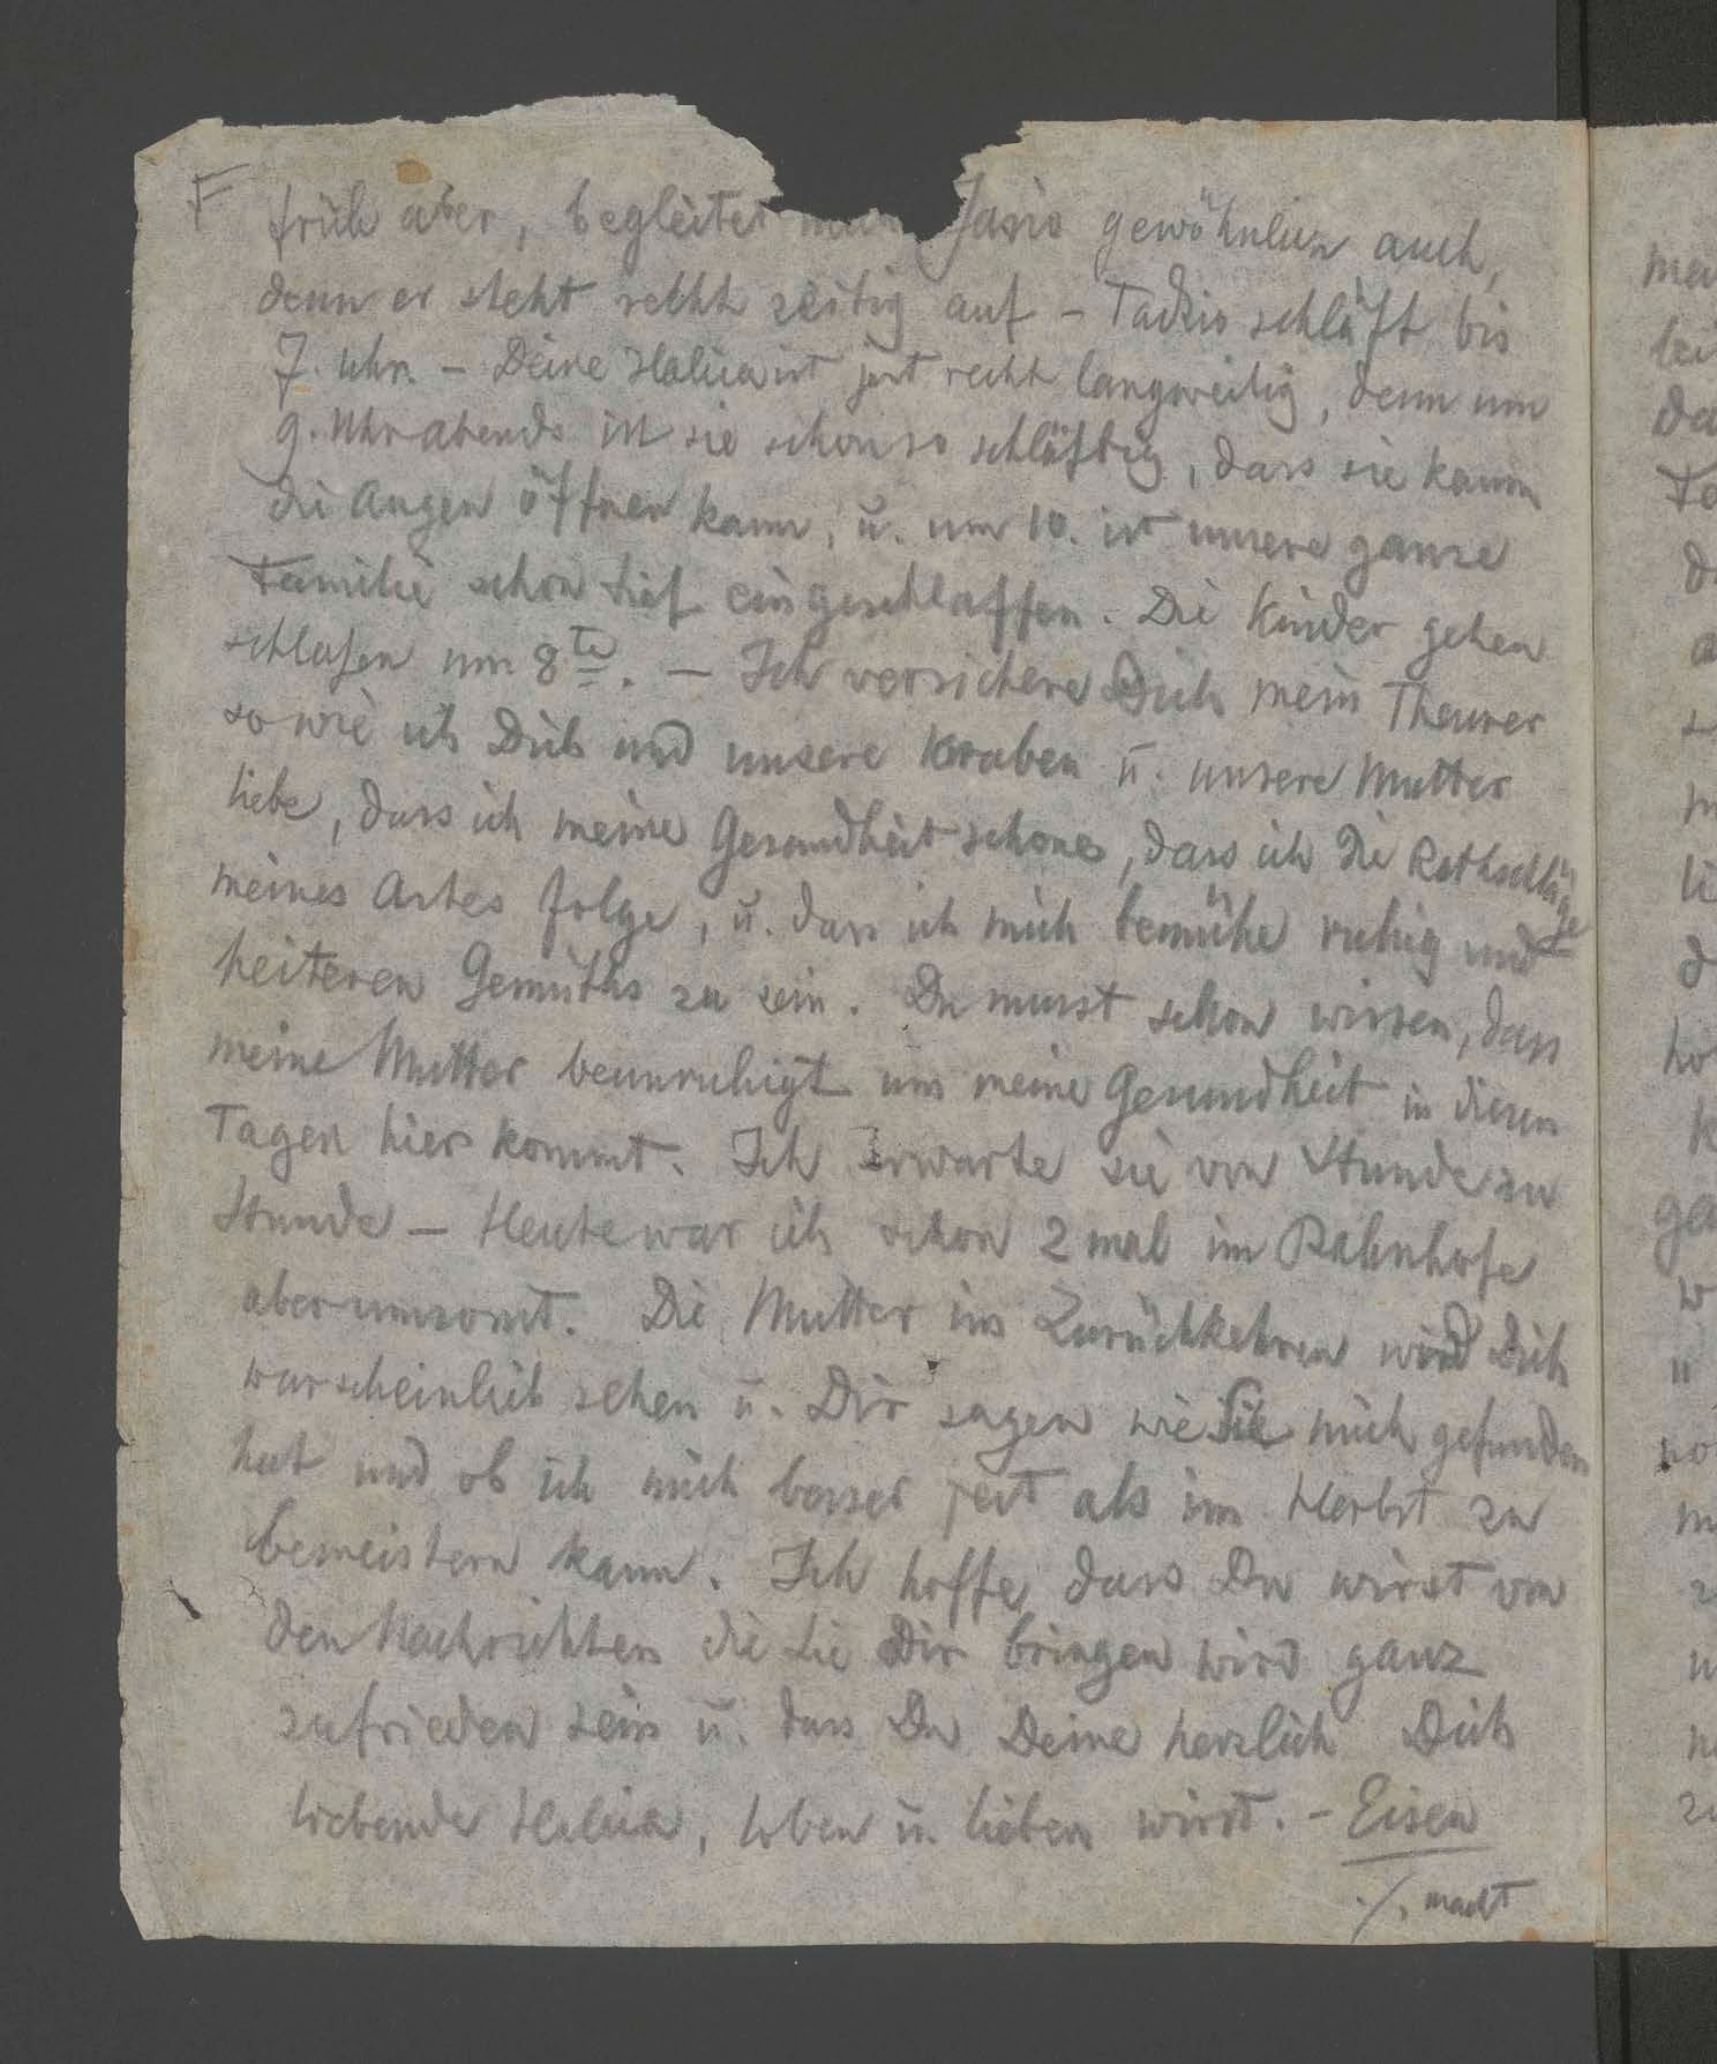 F früh aber, begleitet mich Jasio gewöhnlich auch,
denn er steht rechht zeitig auf – Tadzio schläft bis
7. Uhr. – Deine Halicia ist jezt recht langweilig, denn um
9. Uhr abends ist sie schon so schläftrig, dass sie kaum
die Augen öffnen kann, u. um 10. ist unsere ganze
Familie schon tief eingeschlaffen. Die Kinder gehen
schlafen um 8te. – Ich versichere Dich mein Theurer
so wie ich Dich und unsere Knaben u. unsere Mutter
liebe, dass ich meine Gesundheit schone, dass ich die Rathschläge
meines Artes folge, u. dass ich mich bemühe ruhig und
heiteren Gemüths zu sein. Du musst schon wissen, dass
meine Mutter beunruhigt um meine Gesundheit in diesen
Tagen hier kommt. Ich Erwarte sie von Stunde zu
Stunde – Heute war ich schon 2 mal im Bahnhofe
aber umsonst. Die Mutter im Zurückkehren wird Dich
warscheinlich sehen u. Dir sagen wie Sie mich gefunden
hat und ob ich mich besser jezt als im Herbst zu
bemeistern kann. Ich hoffe, dass Du wirst von
den Nachrichten die Sie Dir bringen wird ganz
zufrieden sein u. dass Du Deine herzlich Dich
liebende Halicia, loben u. lieben wirst. – Eisen
./. macht